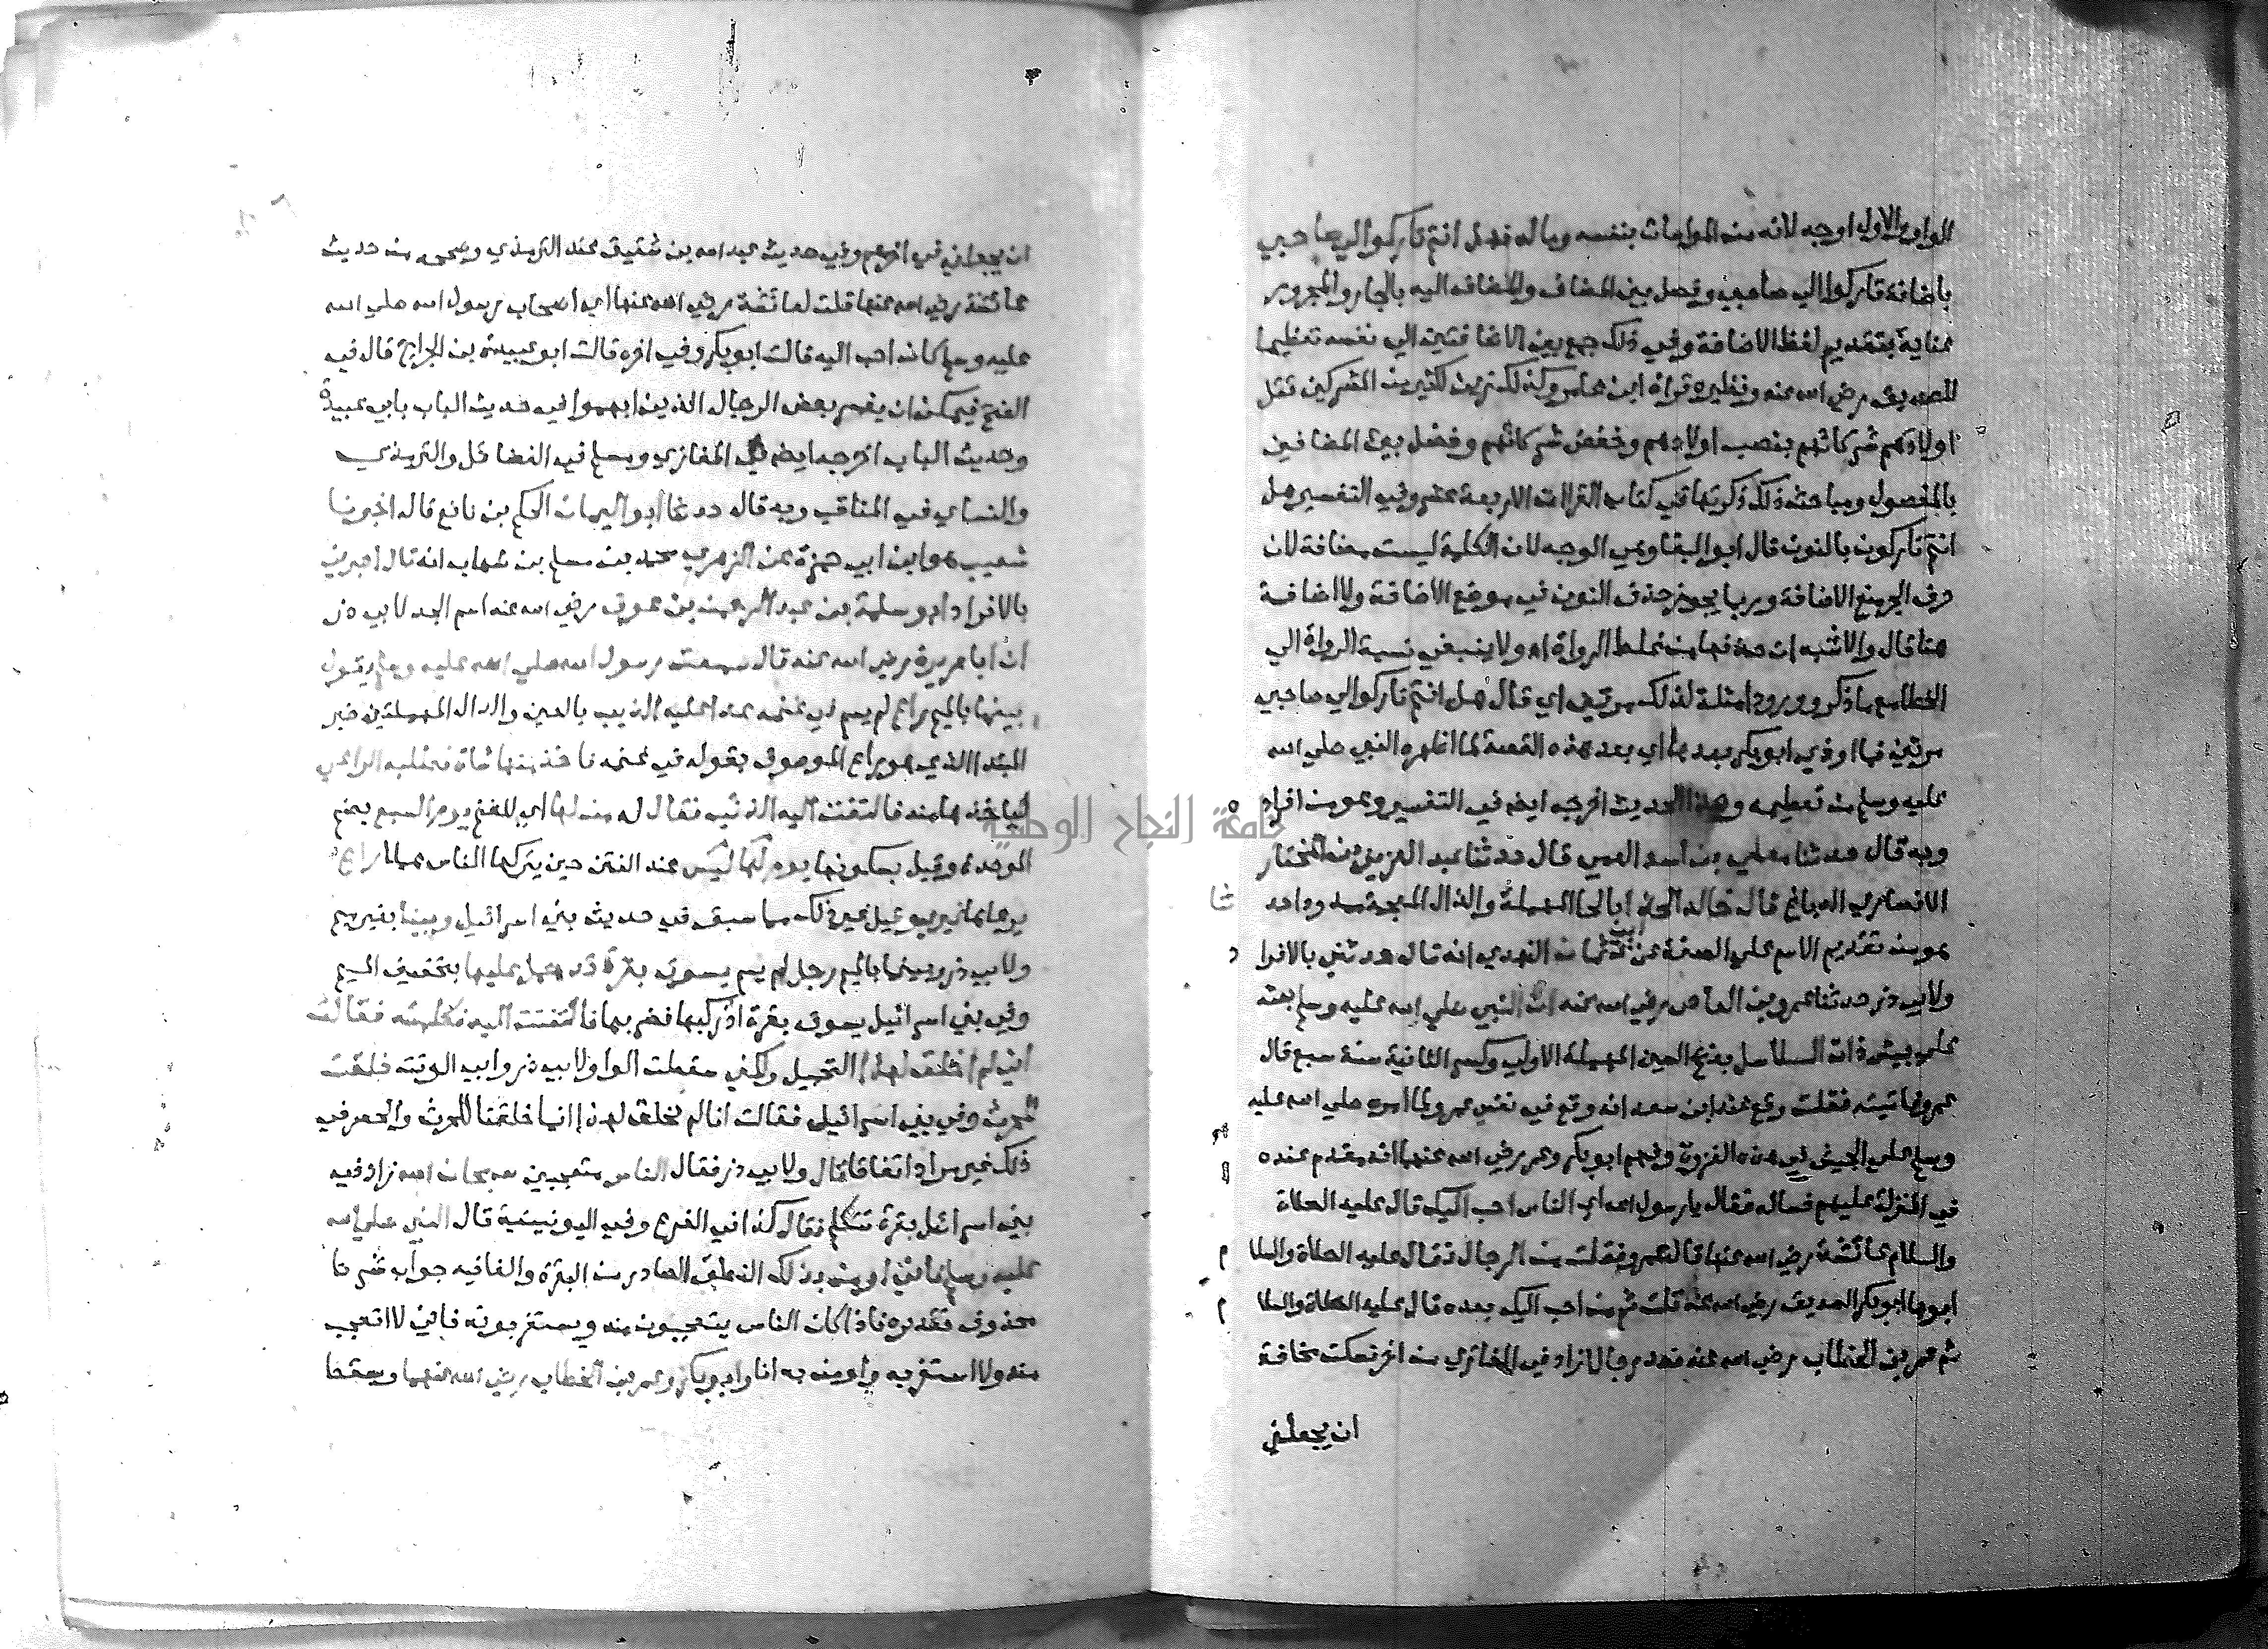 الواو والاول اوجه لانه من المواساة بنفسه وماله فهل انتم تاركوا لي صاحبي
باضافة تاركوا الي صاحبي وفصل بين المضاف والمضاف اليه بالجار والمجرور
عناية بتقديم لفظ الاضافة وفي ذلك جمع بين الاضافتين الي نفسه تعظيما
للصديق رضي الله عنه ونظيره قراة ابن عامر وكذلك زين لكثير من المشركين قتل
اولادهم شركائهم بنصب اولادهم وخفض شركائهم وفصل بين المضافين
بالمفعول ومباحث ذلك ذكرتها في كتاب القراات الاربعة عشر وفي التفسير هل
انتم تاركون بالنون قال ابو البقا وهي الوجه لان الكلمة ليست مضافة لان
حرف الجر منع الاضافة وربما يجوز حذف النون في موضع الاضافة ولا اضافة
هنا قال والاشبه ان حذفها من غلط الرواة اه ولا ينبغي نسبة الرواة الي
الخطا مع ما ذكر وورود امثلة لذلك مرتين اي قال هل انتم تاركوا لي صاحبي
مرتين فما اوذي ابو بكر بعدها اي بعد هذه القصة لما اظهره النبي صلي الله
عليه وسلم من تعظيمه وهذا الحديث اخرجه ايضا في التفسير وهو من افراده
وبه قال حدثنا معلي بن اسد العمي قال حدثنا عبد العزيز بن المختار
الانصاري الدباغ قال خالد الحذا بالحا المهملة والذال المعجمة حد واحد ثنا
هو من تقديم الاسم علي الصفة عن ابي عثمان النهدي انه قال حدثني بالافراد
ولابي ذر حدثنا عمرو بن العاص رضي الله عنه ان النبي صلي الله عليه وسلم بعثه
علي جيش ذات السلاسل بفتح السين المهملة الاولي وكسر الثانية سنة سبع قال
عمرو فاتيته فقلت وقع عند ابن سعد انه وقع في نفس عمرو لما امره صلي الله عليه
وسلم علي الجيش في هذه الغزوة وفيهم ابو بكر وعمر رضي الله عنهما انه مقدم عنده
في المنزلة عليهم فساله فقال يا رسول الله اي الناس احب اليك قال عليه الصلاة
والسلام عائشة رضي الله عنها قال عمرو فقلت من الرجال فقال عليه الصلاة والسلام
ابوها ابو بكر الصديق رضي الله عنه قلت ثم من احب اليك بعده قال عليه الصلاة والسلام
ثم عمر بن الخطاب رضي الله عنه فعد رجالا زاد في المغازي من اخر فسكت مخافة
ان يجعلني
ان يجعلني في اخرهم وفي حديث عبد الله بن شقيق عند الترمذي وصححه من حديث
عائشة رضي الله عنها قلت لعائشة رضي الله عنها اي اصحاب رسول الله صلي الله
عليه وسلم كان احب اليه قالت ابو بكر وفي اخره قالت ابو عبيدة بن الجراح قال في
الفتح فيمكن ان يفسر بعض الرجال الذين ابهموا في حديث الباب بابي عبيدة
وحديث الباب اخرجه ايضا في المغازي ومسلم في الفضائل والترمذي
والنساي في المناقب وبه قال حدثنا ابو اليمان الحكم بن نافع قال اخبرنا
شعيب هو ابن ابي حمزة عن الزهري محمد بن مسلم بن شهاب انه قال اخبرني
بالافراد ابو سلمة بن عبد الرحمن بن عوف رضي الله عنه اسم الجد لابي ذر
ان ابا هريرة رضي الله عنه قال سمعت رسول الله صلي الله عليه وسلم يقول
بينما بالميم راع لم يسم في غنمه عدا عليه الذيب بالعين والدال المهملتين خبر
المبتدا الذي هو راع الموصوف بقوله في غنمه فاخذ منها شاة فطلبه الراعي
لياخذها منه فالتفت اليه الذئب فقال له من لها اي للغنم يوم السبع بضم
الموحدة وقيل بسكونها يوم لها ليس عند الفتن حين يتركها الناس هملا راع
يرعاها غيري وقيل غير ذلك مما سبق في حديث بني اسرائيل وبينا بغير ميم
ولابي ذر وبينما بالميم رجل لم يسم يسوق بقرة قد حمل عليها بتخفيف الميم
وفي بني اسرائيل يسوق بقرة اذ ركبها فضربها فالتفتت اليه فكلمته فقالت
اني لم اخلق لهذا التحميل ولكني سقطت الواو لابي ذر وابي الوقت خلقت
للحرث وفي بني اسرائيل فقالت انا لم نخلق لهذا انما خلقنا للحرث والحصر في
ذلك غير مراد اتفاقا قال ولابي ذر فقال الناس متعجبين سبحان الله زاد في
بني اسرائيل بقرة تتكلم فقال كذا في الفرع وفي اليونينية قال النبي صلي الله
عليه وسلم فاني اومن بذلك النطق الصادر من البقرة والفا فيه جواب شرط
محذوف تقديره فاذا كان الناس يتعجبون منه ويستغربونه فاني لا اتعجب
منه ولا استغربه واومن به انا وابو بكر وعمر بن الخطاب رضي الله عنهما وسقط
جامعة النجاح الوطنية